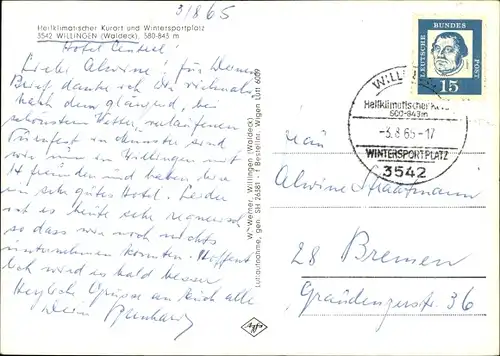 3/8 65
Heilklimatischer Kurort und Wintersportplatz
3542 WILLINGEN (Waldeck), 580-843 m
Hotel Central
Liebe Alwine! für Deinen
Brief danke ich Dir vielmals
Nach dem bei
schönstem Wetter, verlaufenen
in Münster sind
wir nun in Willingen mit
14 Freunden und haben hier
ein sehr gutes Hotel. Leider
ist es heute sehr
so dass wir noch nichts
unternehmen konnten. Hoffent
lich wird es bald besser
Herzliche Grüsse an Euch alle
Dein Bernhard
W. Werner, Willingen (Waldeck)
Luftaufnahme, gen. SH 26381 - f Bestellnr. Wigen Luft 6609
Agfa
DEUTSCHE BUNDESPOST
15
WILLINGEN
Heilklimatischer Kurort
500-843m
-3.8.65-17
WINTERSPORTPLATZ
3542
Frau
Alwine
28 Bremen
Graudenzerstr. 36